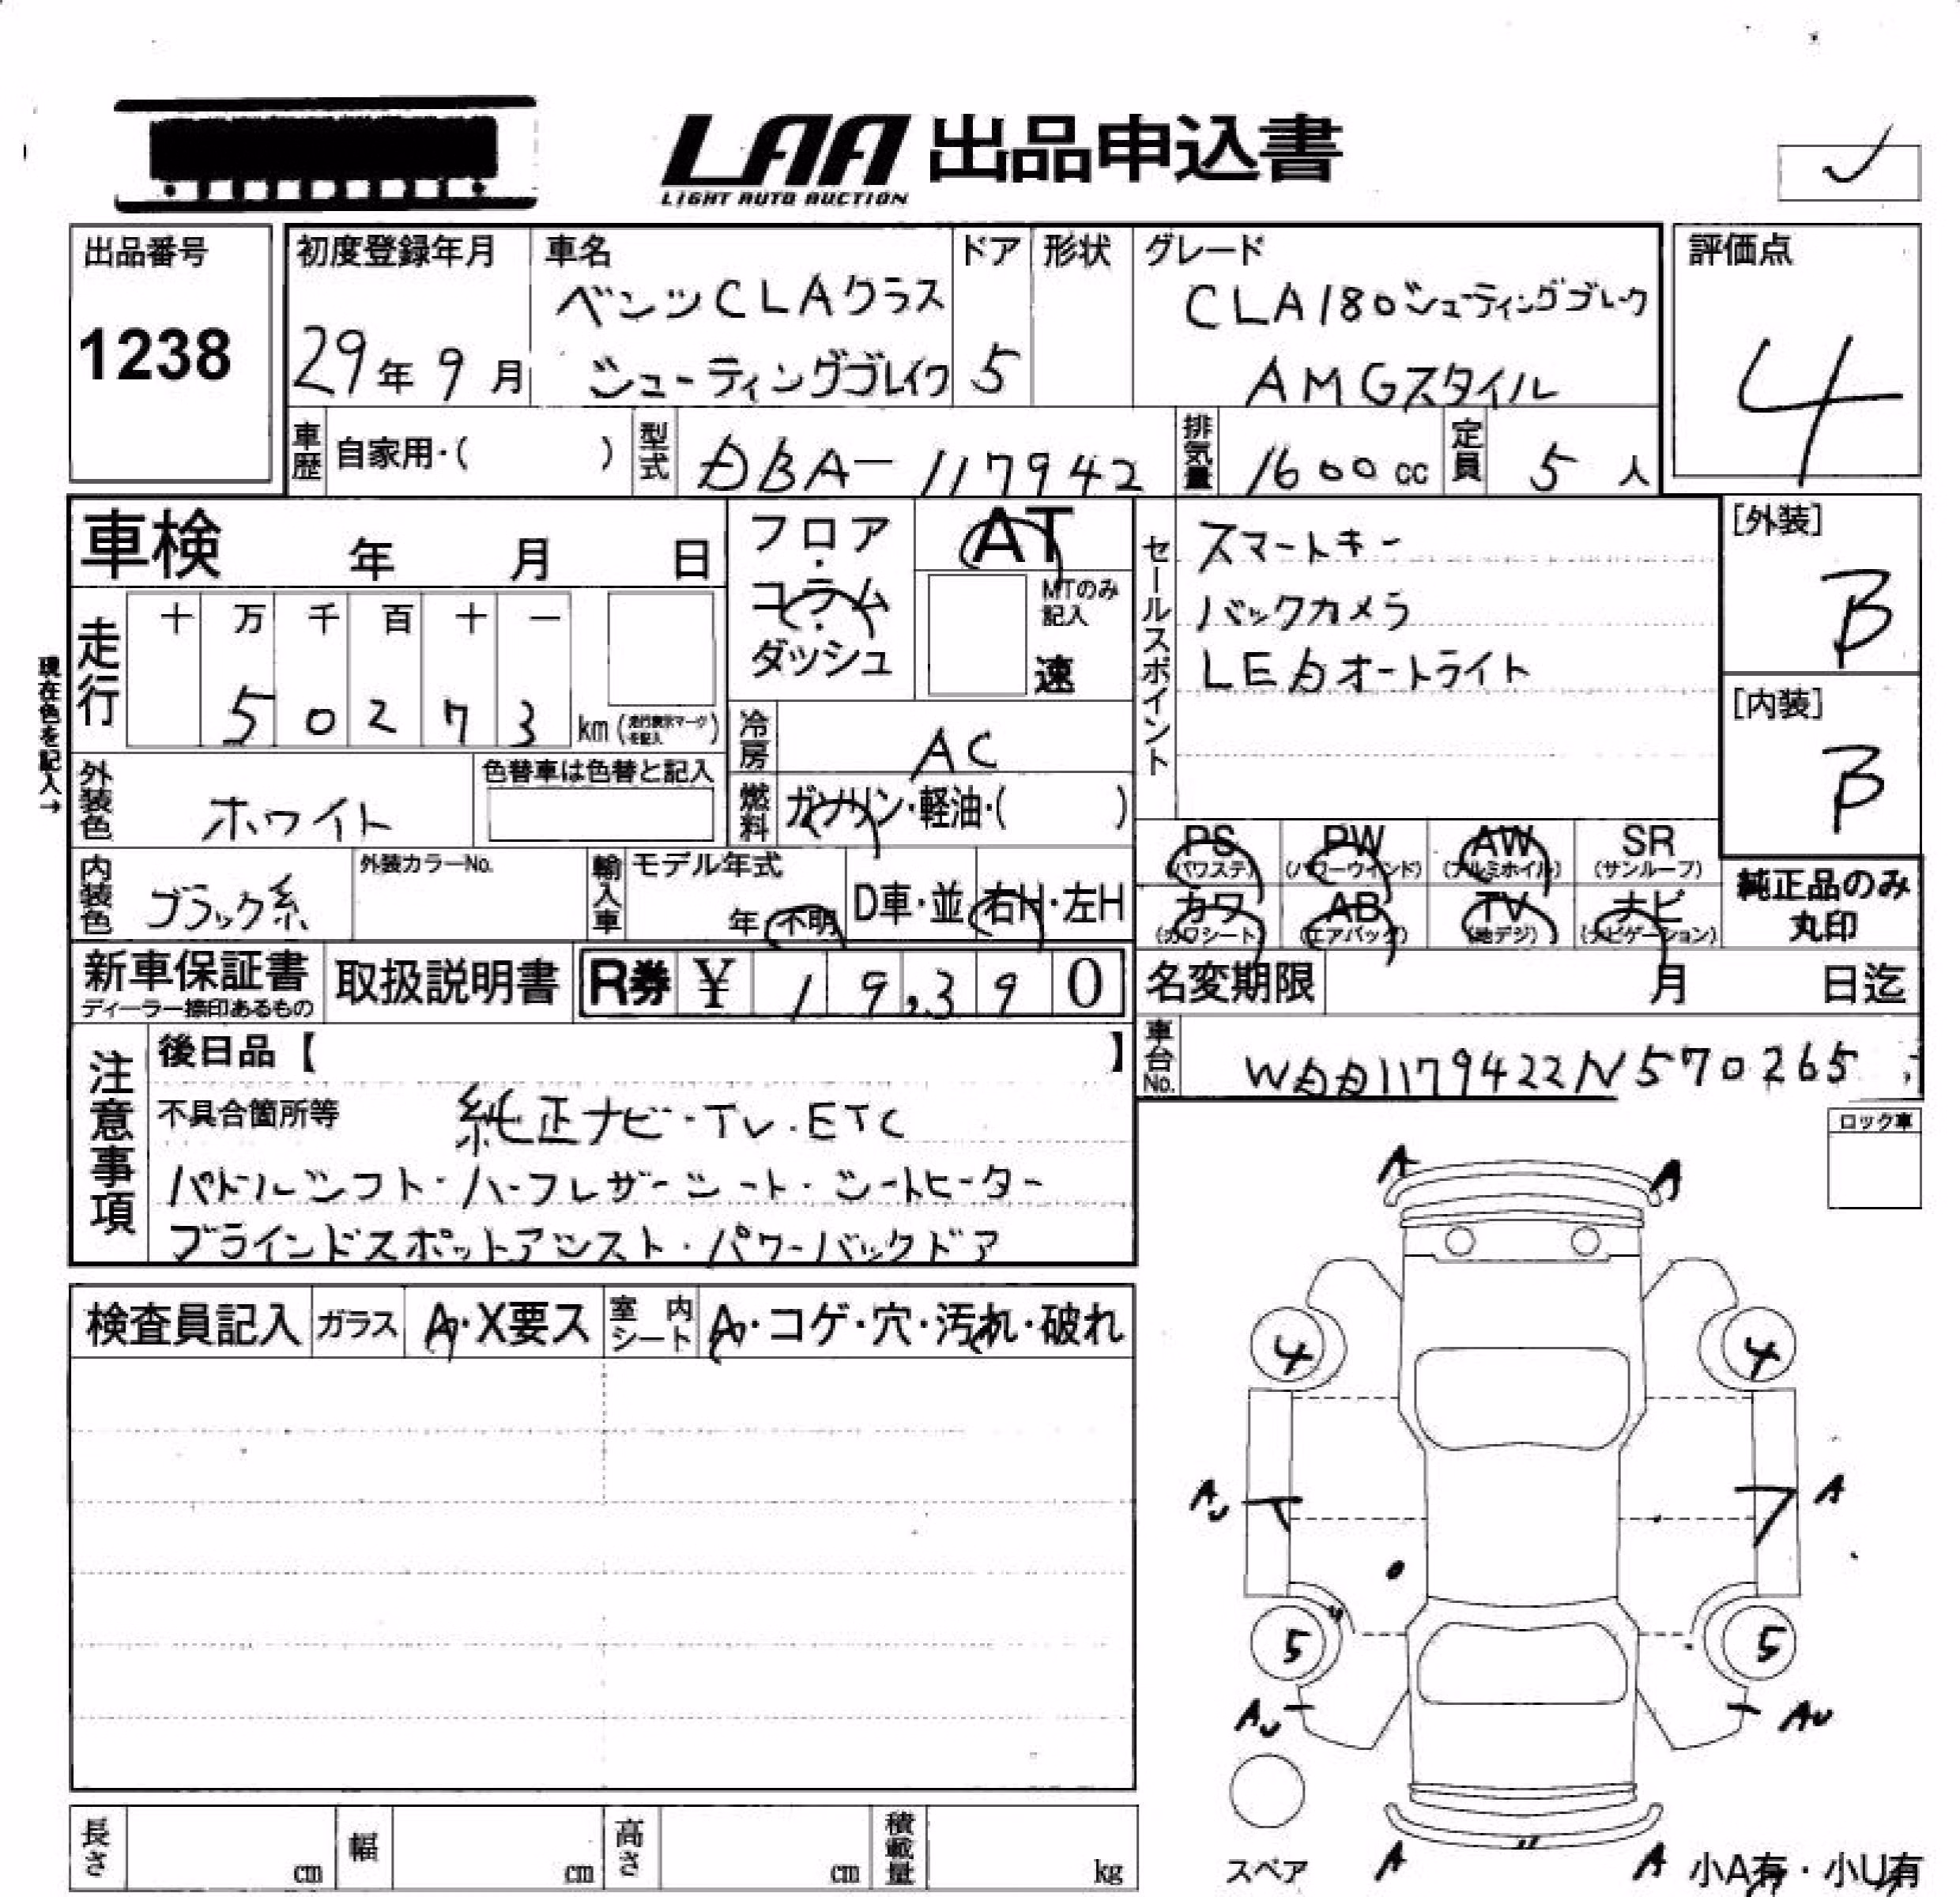 LAA 出品申込書
LIGHT AUTO AUCTION
出品番号
1238
初度登録年月
29年9月
車名
ベンツCLAクラス
シューティングブレイク
ドア
5
形状
グレード
CLA180シューティングブレーク
AMGスタイル
評価点
4
車歴 自家用・( )
型式 DBA-117942
排気量 1600cc
定員 5人
車検 年 月 日
フロア・コラム・ダッシュ
AT
MTのみ記入
速
セールスポイント
スマートキー
バックカメラ
LEDオートライト
[外装]
B
[内装]
B
現在色を記入→
走行
十 万 千 百 十 一
5 0 2 7 3 km (走行表示マークを記入)
冷房 AC
燃料 ガソリン・軽油・( )
外装色 ホワイト
色替車は色替と記入
内装色 ブラック系
外装カラーNo.
輸入車 モデル年式
年 不明
D車・並 右H・左H
PS (パワステ)
PW (パワーウインド)
AW (アルミホイル)
SR (サンルーフ)
カワ (カワシート)
AB (エアバッグ)
TV (地デジ)
ナビ (ナビゲーション)
純正品のみ
丸印
新車保証書
ディーラー捺印あるもの
取扱説明書
R券 ¥ 19,390
名変期限 月 日迄
車台No. WDD1179422N570265
注意事項
後日品【 】
不具合箇所等 純正ナビ・TV・ETC
パドルシフト・ハーフレザーシート・シートヒーター
ブラインドスポットアシスト・パワーバックドア
ロック車
検査員記入 ガラス A・X要ス 室内シート A・コゲ・穴・汚れ・破れ
A A
4 4
AU A
5 5
AU AU
スペア
A A
小A有・小U有
長さ cm 幅 cm 高さ cm 積載量 kg